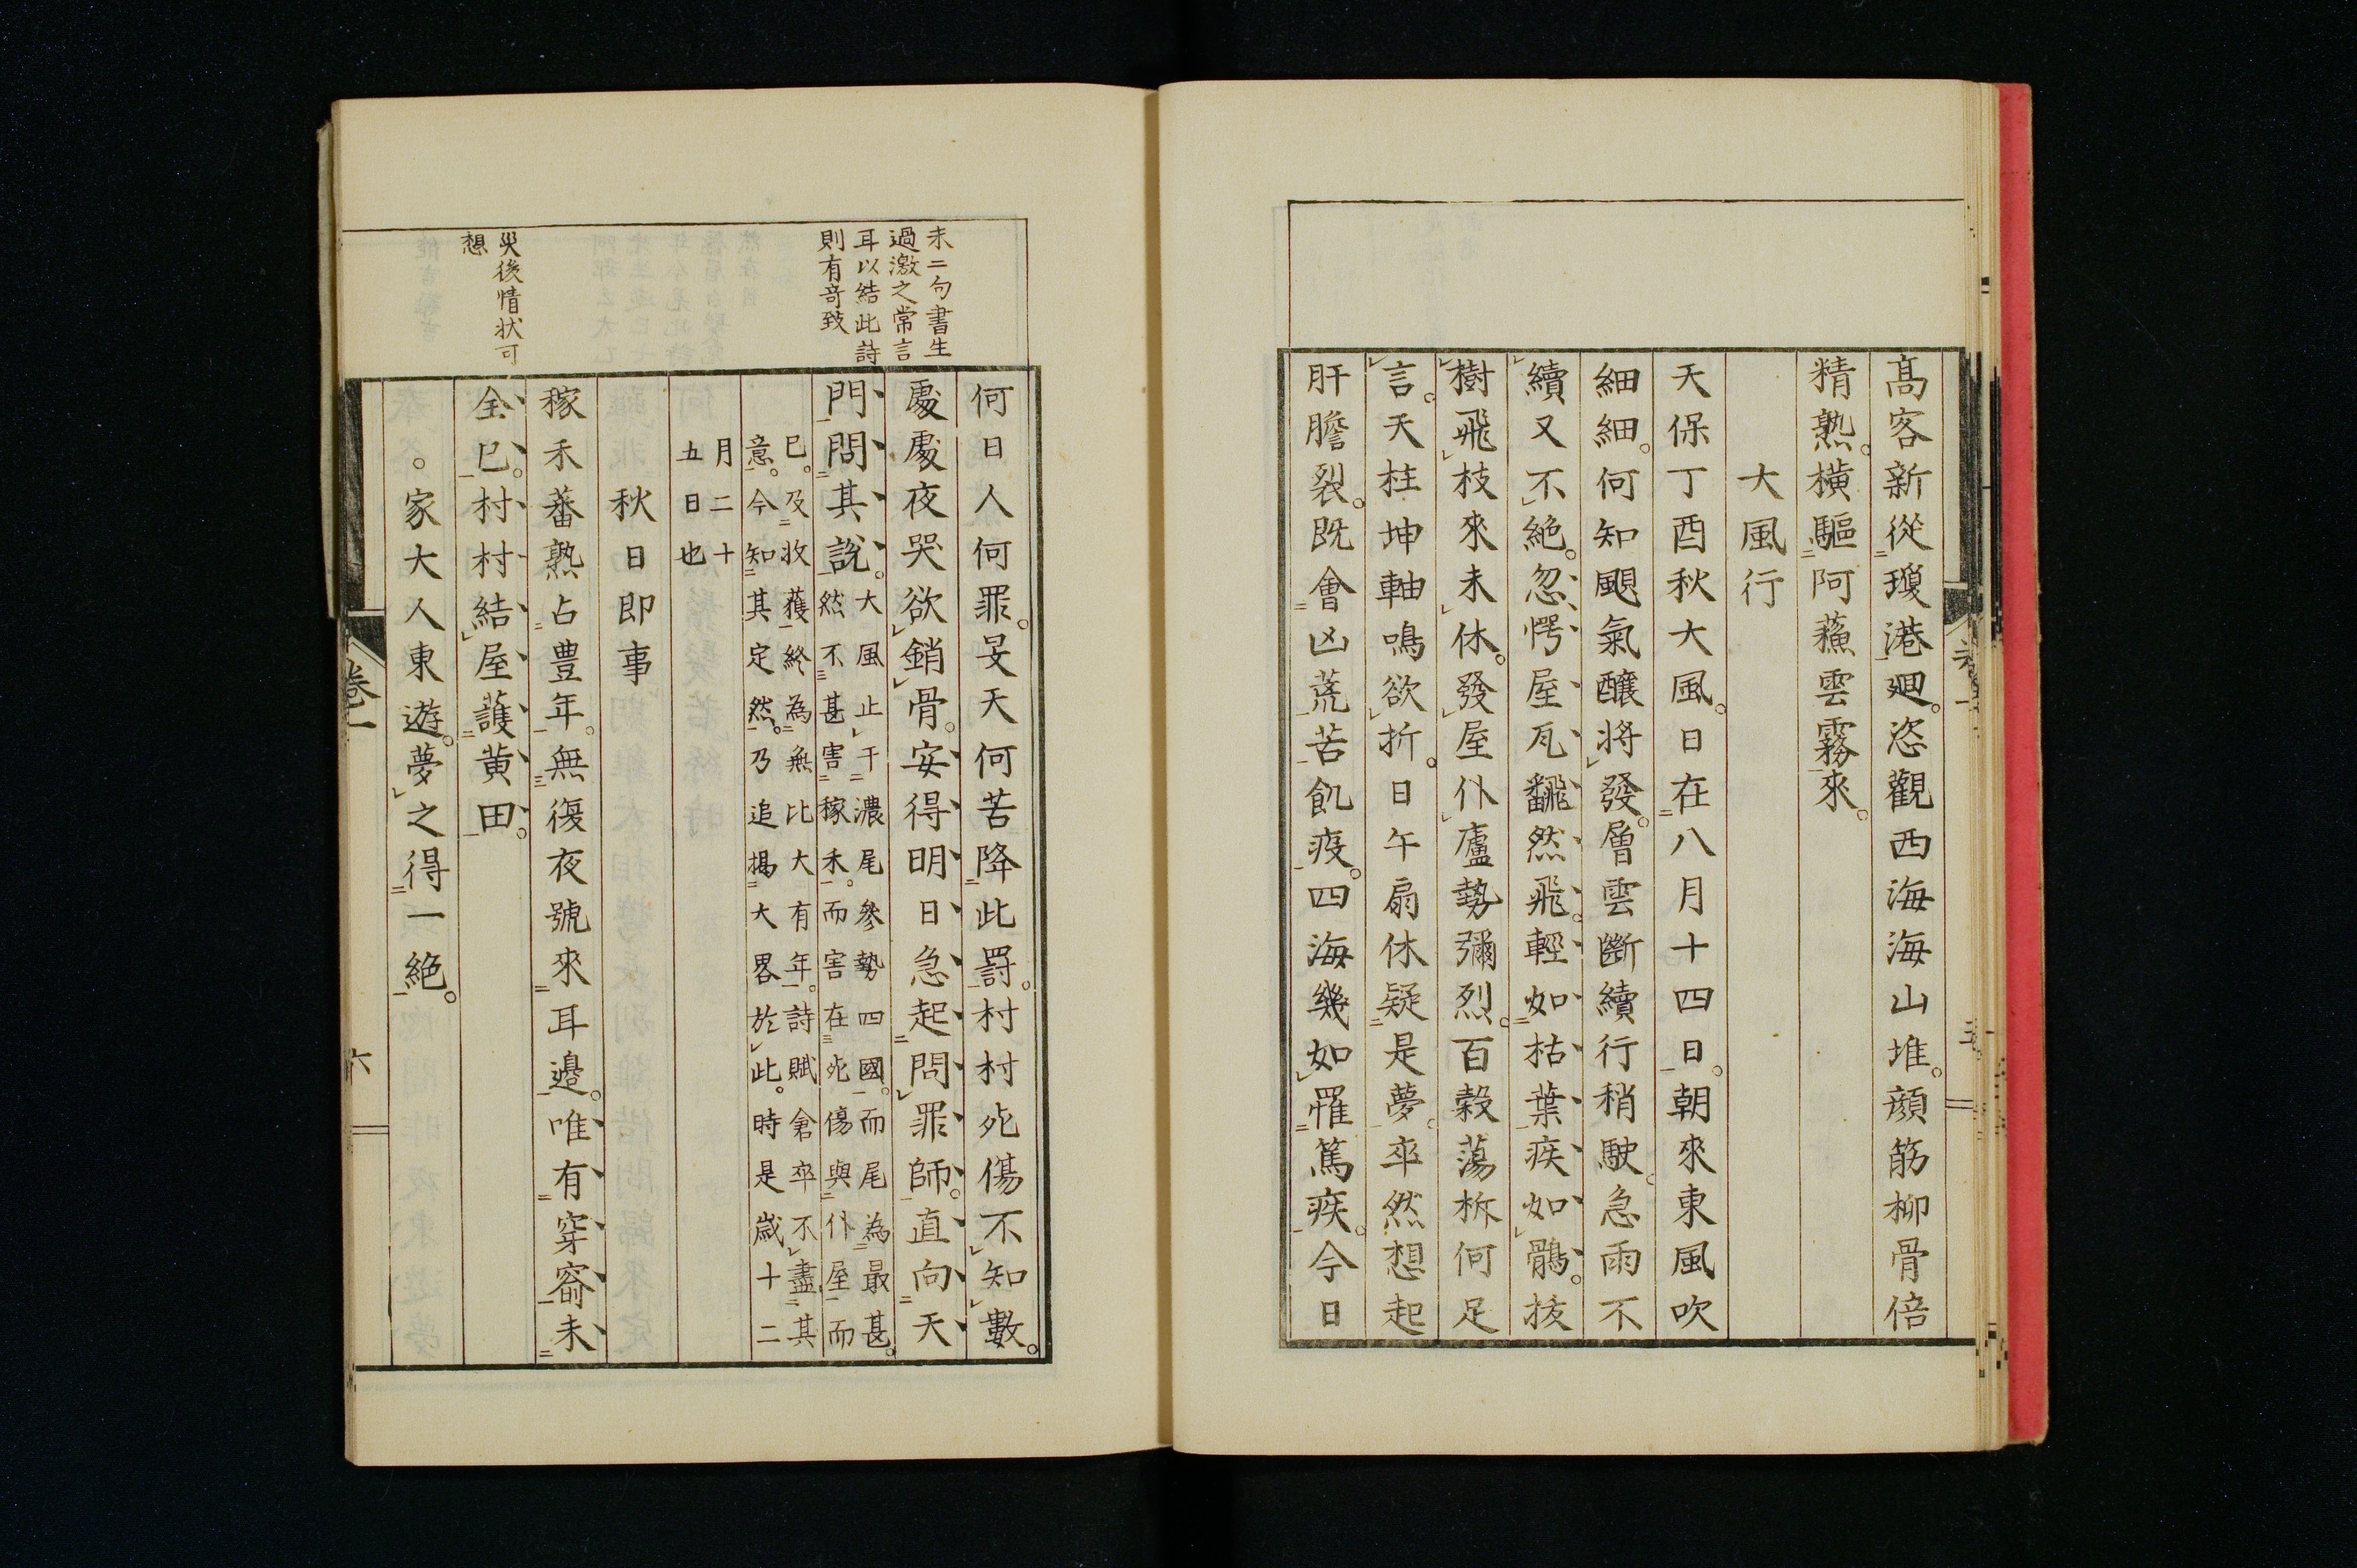 高客新從瓊港廻。恣觀西海海山堆。顔筋柳骨倍
精熟。橫驅阿蘓雲霧來。
大風行
天保丁酉秋大風。日在八月十四日。朝來東風吹
細細。何知颶氣釀將發。層雲斷續行稍駛。急雨不
續又不絕。忽愕屋瓦飜然飛。輕如枯葉疾如鶻。拔
樹飛枝來未休。發屋仆廬勢彌烈。百穀蕩析何足
言。天柱坤軸鳴欲折。日午扇休疑是夢。卒然想起
肝膽裂。既會凶荒苦飢疫。四海幾如罹篤疾。今日
何日人何罪。旻天何苦降此罸。村村死傷不知數。
處處夜哭欲銷骨。安得明日急起問罪師。直向天
門問其說。
大風止于濃尾參勢四國。而尾為最甚。
然不甚害稼禾。而害在死傷與仆屋而
已。及收獲終為無比大有年。詩賦倉卒不盡其
意。今知其定然。乃追揭大畧於此。時是歲十二
月二十
五日也
秋日即事
稼禾蕃熟占豊年。無復夜號來耳邊。唯有穿窬未
全已。村村結屋護黄田。
。家大人東遊。夢之得一絕。
末二句書生
過激之常言
耳以結此詩
則有竒致
災後情状可
想
卷一
六